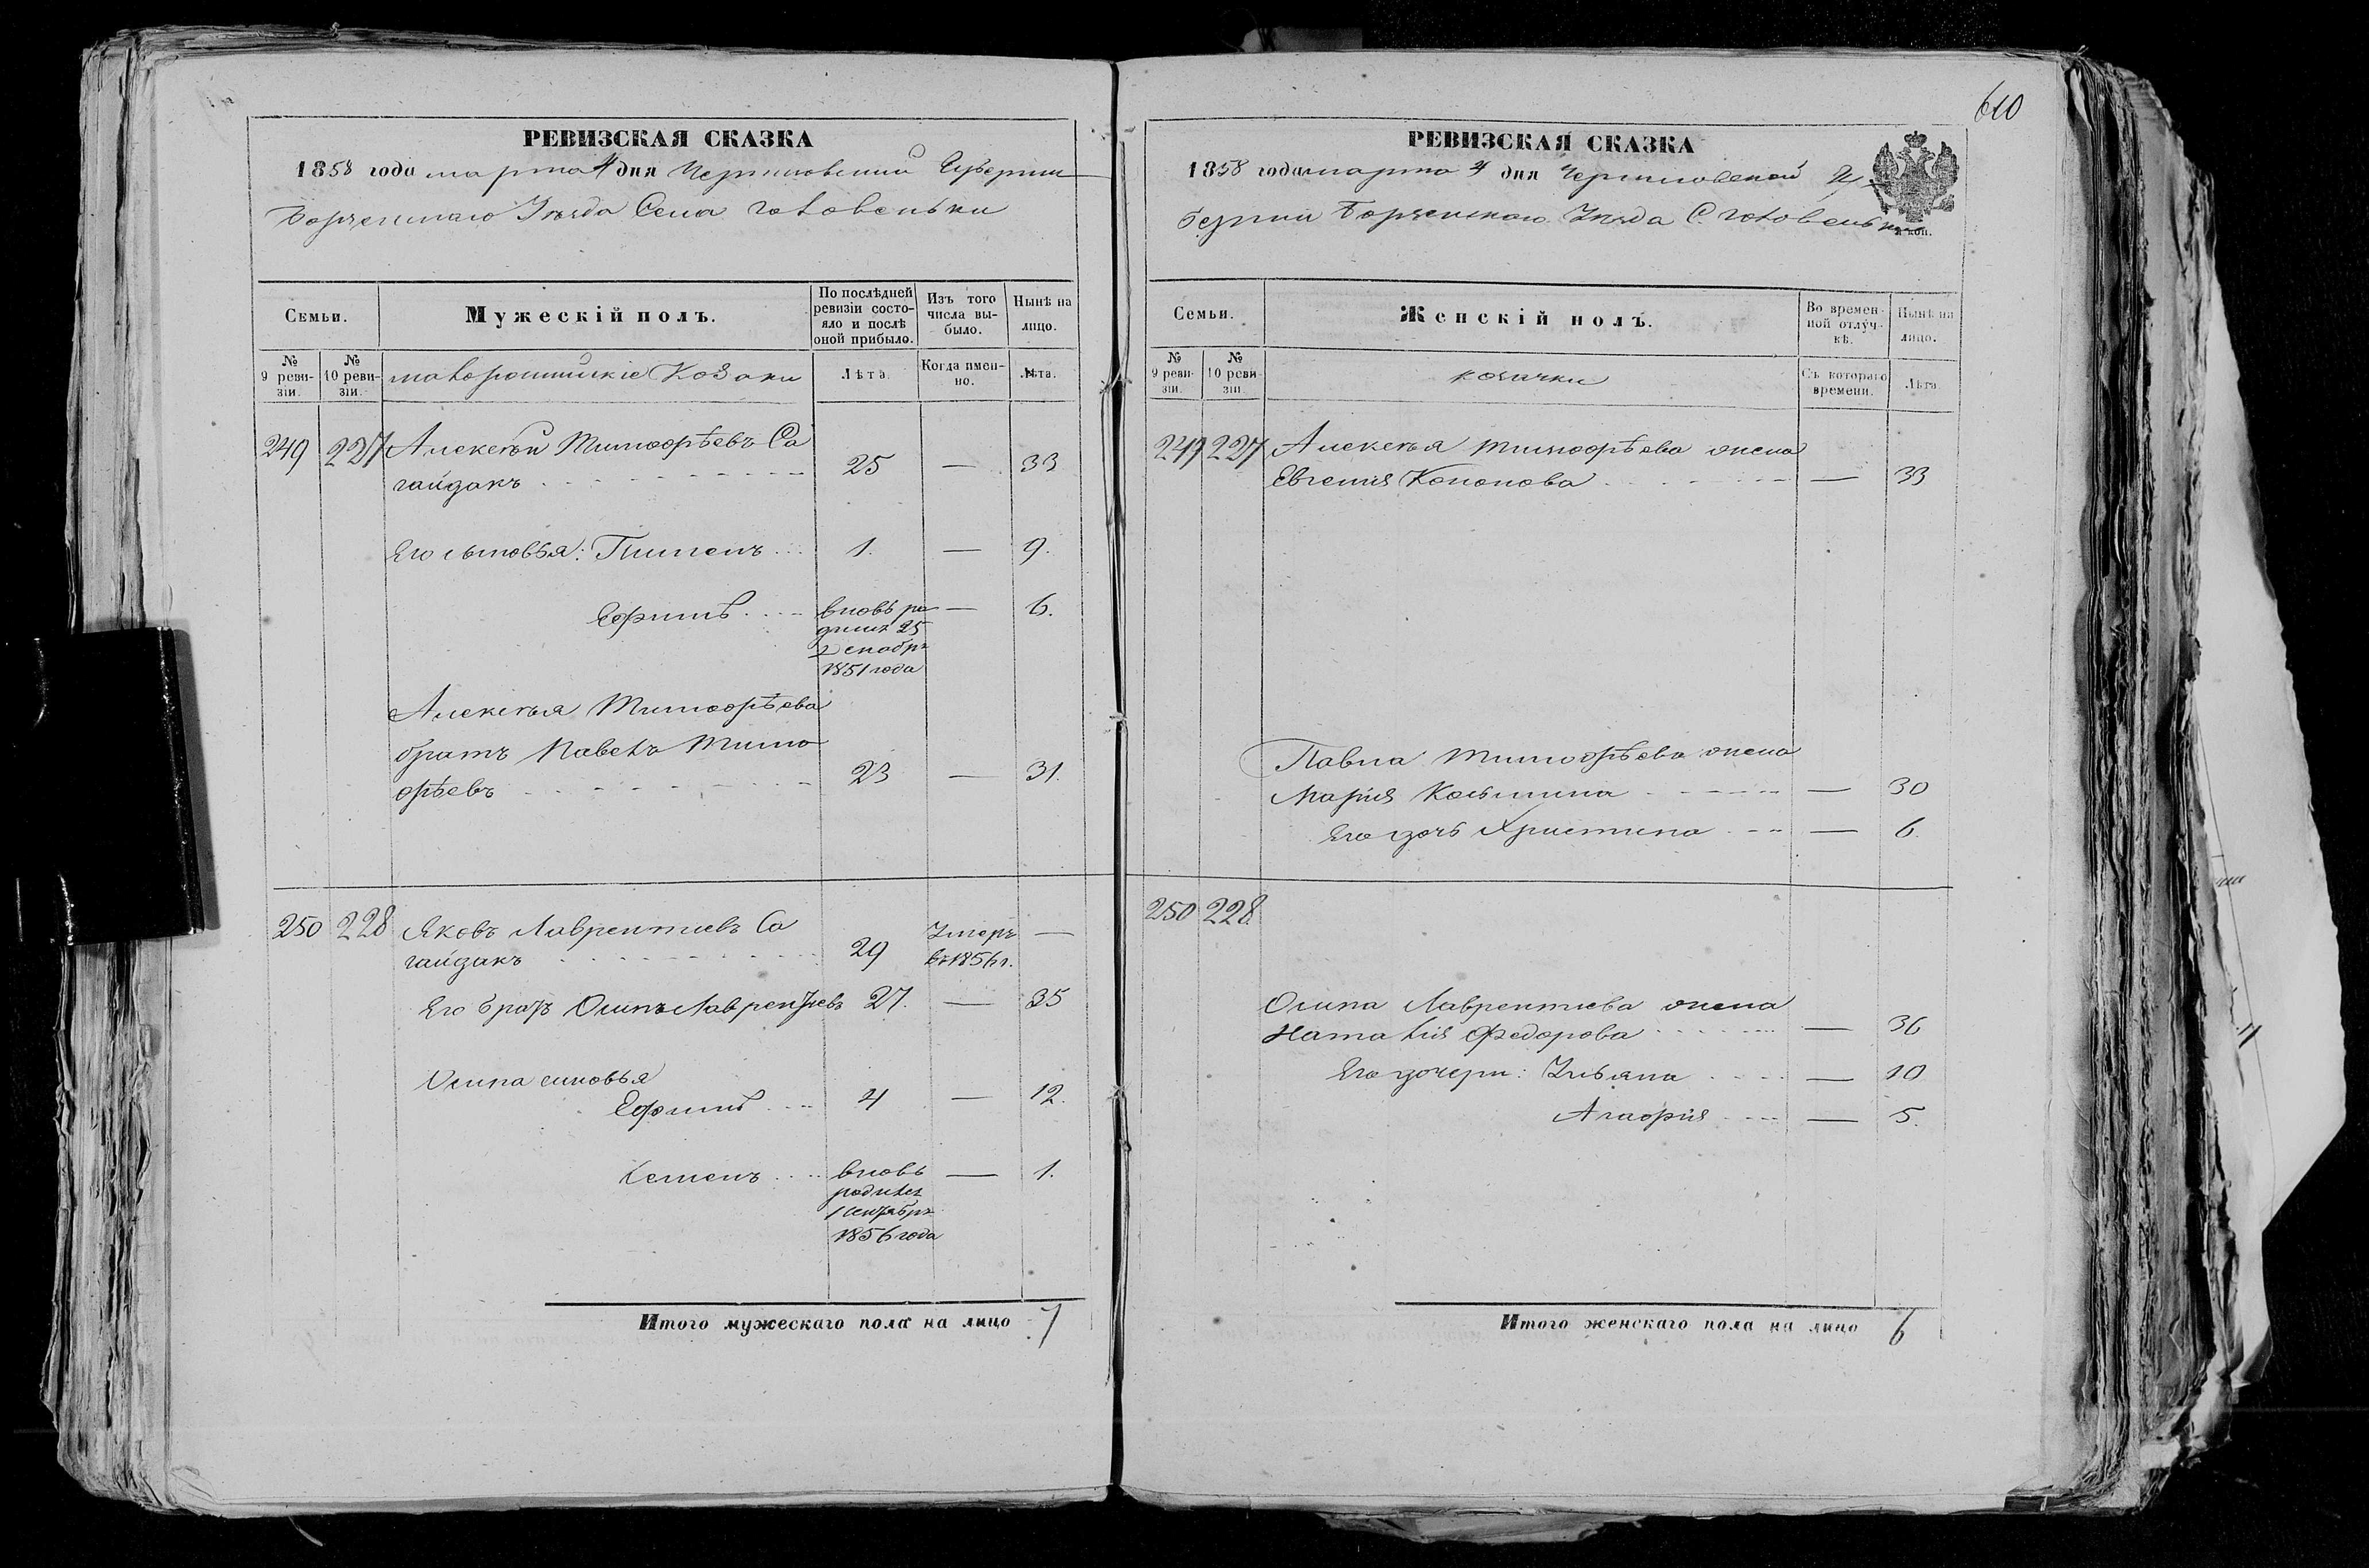 РЕВИЗСКАЯ СКАЗКА
1858 года марта 4 дня Черниговской Губернии
Борзенскаго Уѣзда Села Головеньки
Семьи.
Мужескій полъ.
По послѣдней ревизіи состо-
яло и послѣ
оной прибыло.
Изъ того
числа вы-
было.
Нынѣ на
лицо.
№
9 реви-
зіи.
№
10 реви-
зіи.
малороссійскіе Козаки
Лѣта.
Когда имен-
но.
Лѣта.
249 227 Алексѣй Тимофѣевъ Са
гайдакъ 25 — 33
Его сыновья: Пименъ 1. — 9.
Ефимъ вновь ро — 6.
дился 25
Декабря
1851 года
Алексѣя Тимофѣева
братъ Павелъ Тимо
фѣевъ 23 — 31.
250 228 Яковъ Лаврентиевъ Са
гайдакъ 29 Умеръ —
въ 1856 г.
Его братъ Осипъ Лаврентиевъ 27. — 35
Осипа сыновья
Ефимъ 4 — 12.
Семенъ вновь — 1.
родился
1 Сентября
1856 года
Итого мужескаго пола на лицо 7
610
РЕВИЗСКАЯ СКАЗКА
1858 года марта 4 дня Черниговской Гу
берніи Борзенскаго Уѣзда С. Головеньки
коп.
Семьи.
Женскій полъ.
Во времен-
ной отлуч-
кѣ.
Нынѣ на
лицо.
№
9 реви-
зіи.
№
10 реви-
зіи.
козачки
Съ котораго
времени.
Лѣта.
249 227 Алексѣя Тимофѣева жена
Евгенія Кононова — 33
Павла Тимофѣева жена
Марія Косьмина — 30
Его дочь Христина — 6.
250 228
Осипа Лаврентиева жена
Наталія Федорова — 36
Его дочери: Ульяна — 10
Агафія — 5.
Итого женскаго пола на лицо 6